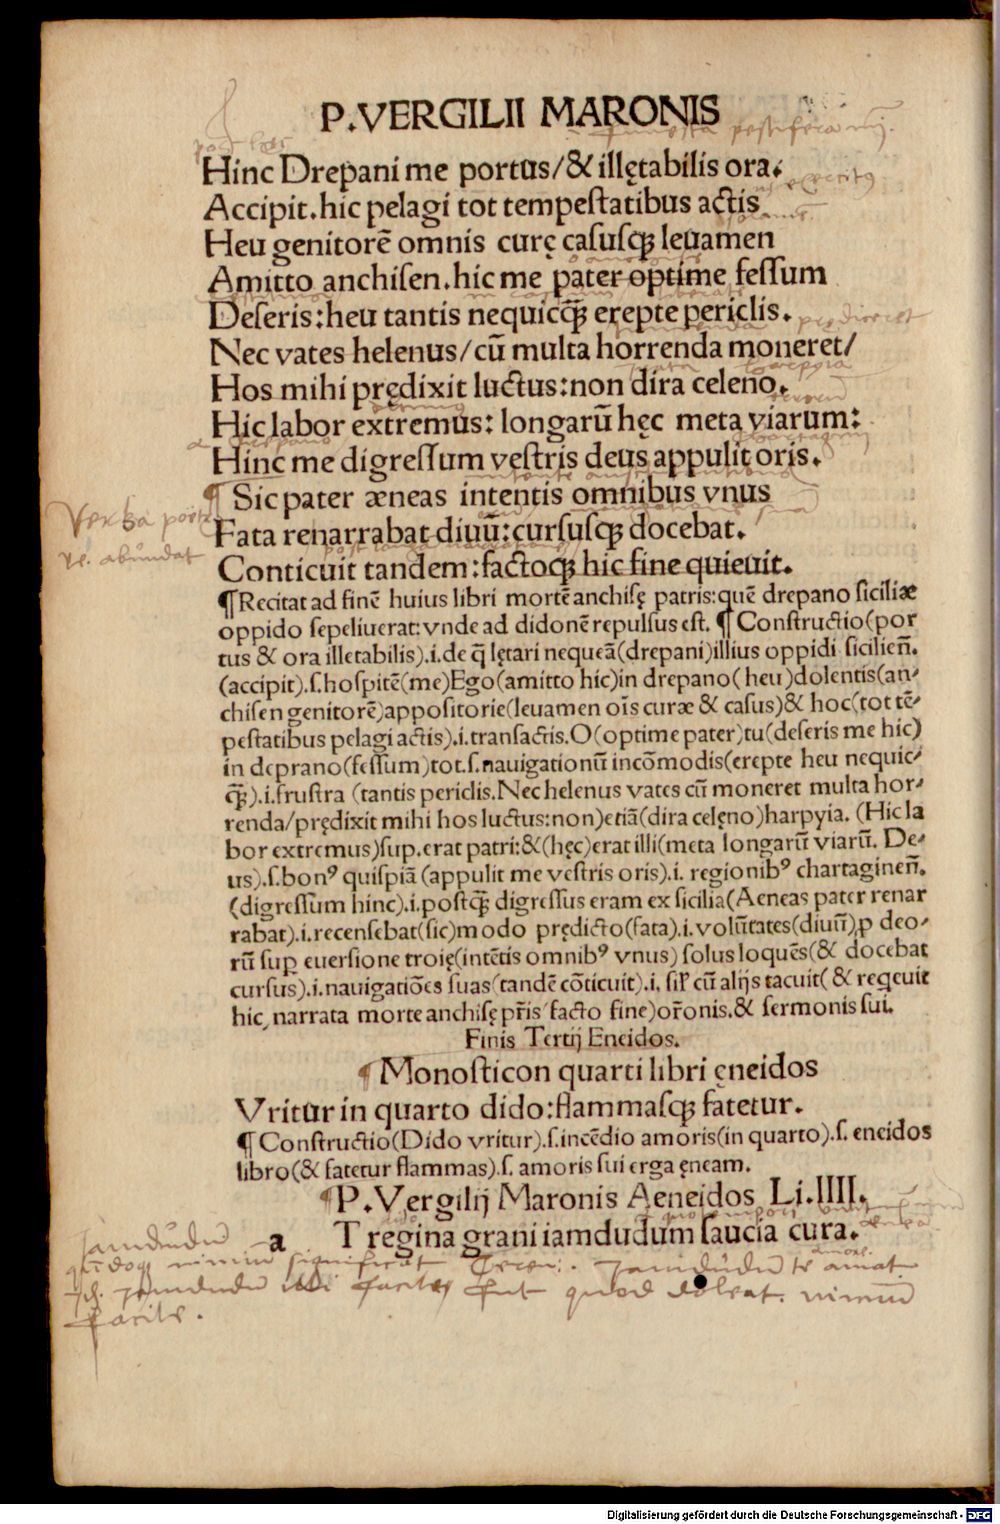 P.VERGILII MARONIS
Hinc Drepani me portus/& illętabilis ora.
Accipit.hic pelagi tot tempestatibus actis
Heu genitorē omnis curę casusqꝫ leuamen
Amitto anchisen.hic me pater optime fessum
Deseris:heu tantis nequicq̄ꝫ erepte periclis.
Nec vates helenus/cū multa horrenda moneret/
Hos mihi prędixit luctus:non dira celeno.
Hic labor extremus: longarū hęc meta viarum:
Hinc me digressum vestris deus appulit oris.
¶ Sic pater æneas intentis omnibus vnus
Verba poetę
Fata renarrabat diuū:cursusqꝫ docebat.
abundat
Conticuit tandem:factoqꝫ hic fine quieuit.
¶Recitat ad finē huius libri mortē anchisę patris:quē drepano siciliæ
oppido sepeliuerat:vnde ad didonē repulsus est. ¶ Constructio(por
tus & ora illetabilis).i.de q̄ lętari nequeā(drepani)illius oppidi sicilien̄.
(accipit).s.hospitē(me)Ego(amitto hic)in drepano(heu)dolentis(an-
chisen genitorē)appositorie(leuamen oīs curæ & casus)& hoc(tot tē-
pestatibus pelagi actis).i.transactis.O(optime pater)tu(deseris me hic)
in deprano(fessum)tot.s.nauigationū incōmodis(erepte heu nequic-
q̄ꝫ).i.frustra (tantis periclis.Nec helenus vates cū moneret multa hor-
renda/prędixit mihi hos luctus:non)etiā(dira celęno)harpyia. (Hic la
bor extremus)sup.erat patri:&(hęc)erat illi(meta longarū viarū. De-
us).s.bonꝰ quispiā(appulit me vestris oris).i. regionibꝰ chartaginen̄.
(digressum hinc).i.postq̄ꝫ digressus eram ex sicilia(Aeneas pater renar
rabat).i.recensebat(sic)modo prędicto(fata).i.volūtates(diuū)ꝓ deo-
rū suꝑ euersione troię(intētis omnibꝰ vnus) solus loquēs(& docebat
cursus).i.nauigatiōes suas(tandē cōticuit).i. sil̛ cū alijs tacuit( & reqeuit
hic narrata morte anchisę pr̄is facto fine)or̄onis.& sermonis sui.
Finis Tertij Eneidos.
¶ Monosticon quarti libri ęneidos
Vritur in quarto dido:flammasqꝫ fatetur.
¶ Constructio(Dido vritur).s.incēdio amoris(in quarto).s. eneidos
libro(& fatetur flammas).s. amoris sui erga ęneam.
¶P.Vergilij Maronis Aeneidos Li.IIII.
a T regina graui iamdudum saucia cura.
Iamdudū
nimiū significat Teren: . Iamdudū te amat
Iamdudū illi facile fit quod doleat. nimiū
facile.
Digitalisierung gefördert durch die Deutsche Forschungsgemeinschaft - DFG